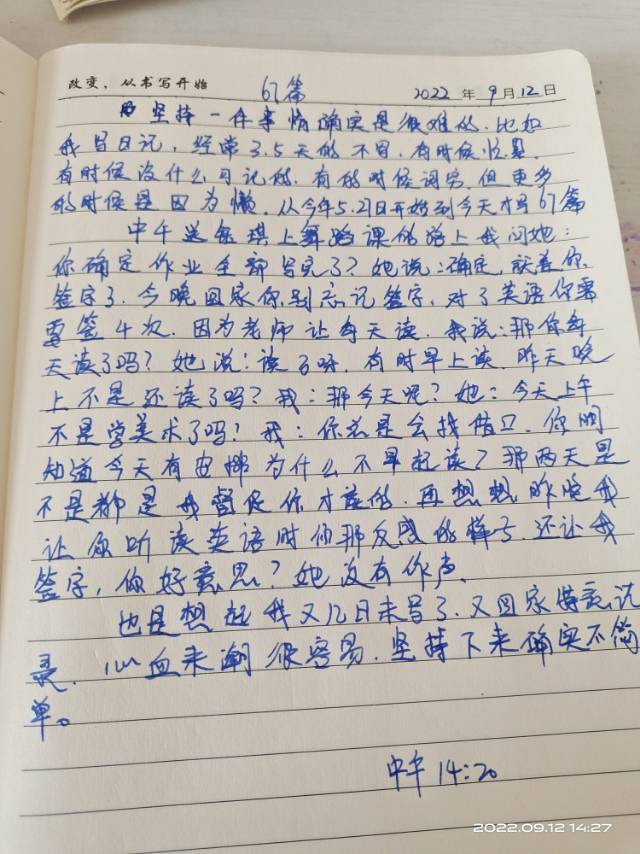 改变，从书写开始 67篇 2022年9月12日
坚持一件事情确实是很难的.比如
我写日记，经常3.5天的不写.有时候忙累.
有时候没什么可记的.有的时候词穷.但更多
的时候是因为懒.从今年5.21日开始到今天才写67篇
中午送钰琪上舞蹈课的路上我问她：
你确定作业全部写完了？她说：确定.就差你
签字了.今晚回家你别忘记签字，对了英语你需
要签4次.因为老师让每天读.我说：那你每
天读了吗？她说：读了呀，有时早上读.昨天晚
上不是还读了吗？我：那今天呢？她：今天上午
不是学美术了吗！我：你总是会找借口.你明
知道今天有安排为什么不早起读？那两天是
不是都是我督促你才读的.再想想昨晚我
让你听读英语时你那反感的样子.还让我
签字，你好意思？她没有作声.
也是想起我又几日未写了.又回家特意记
录.心血来潮很容易.坚持下来确实不简
单。
中午14:20
2022.09.12 14:27